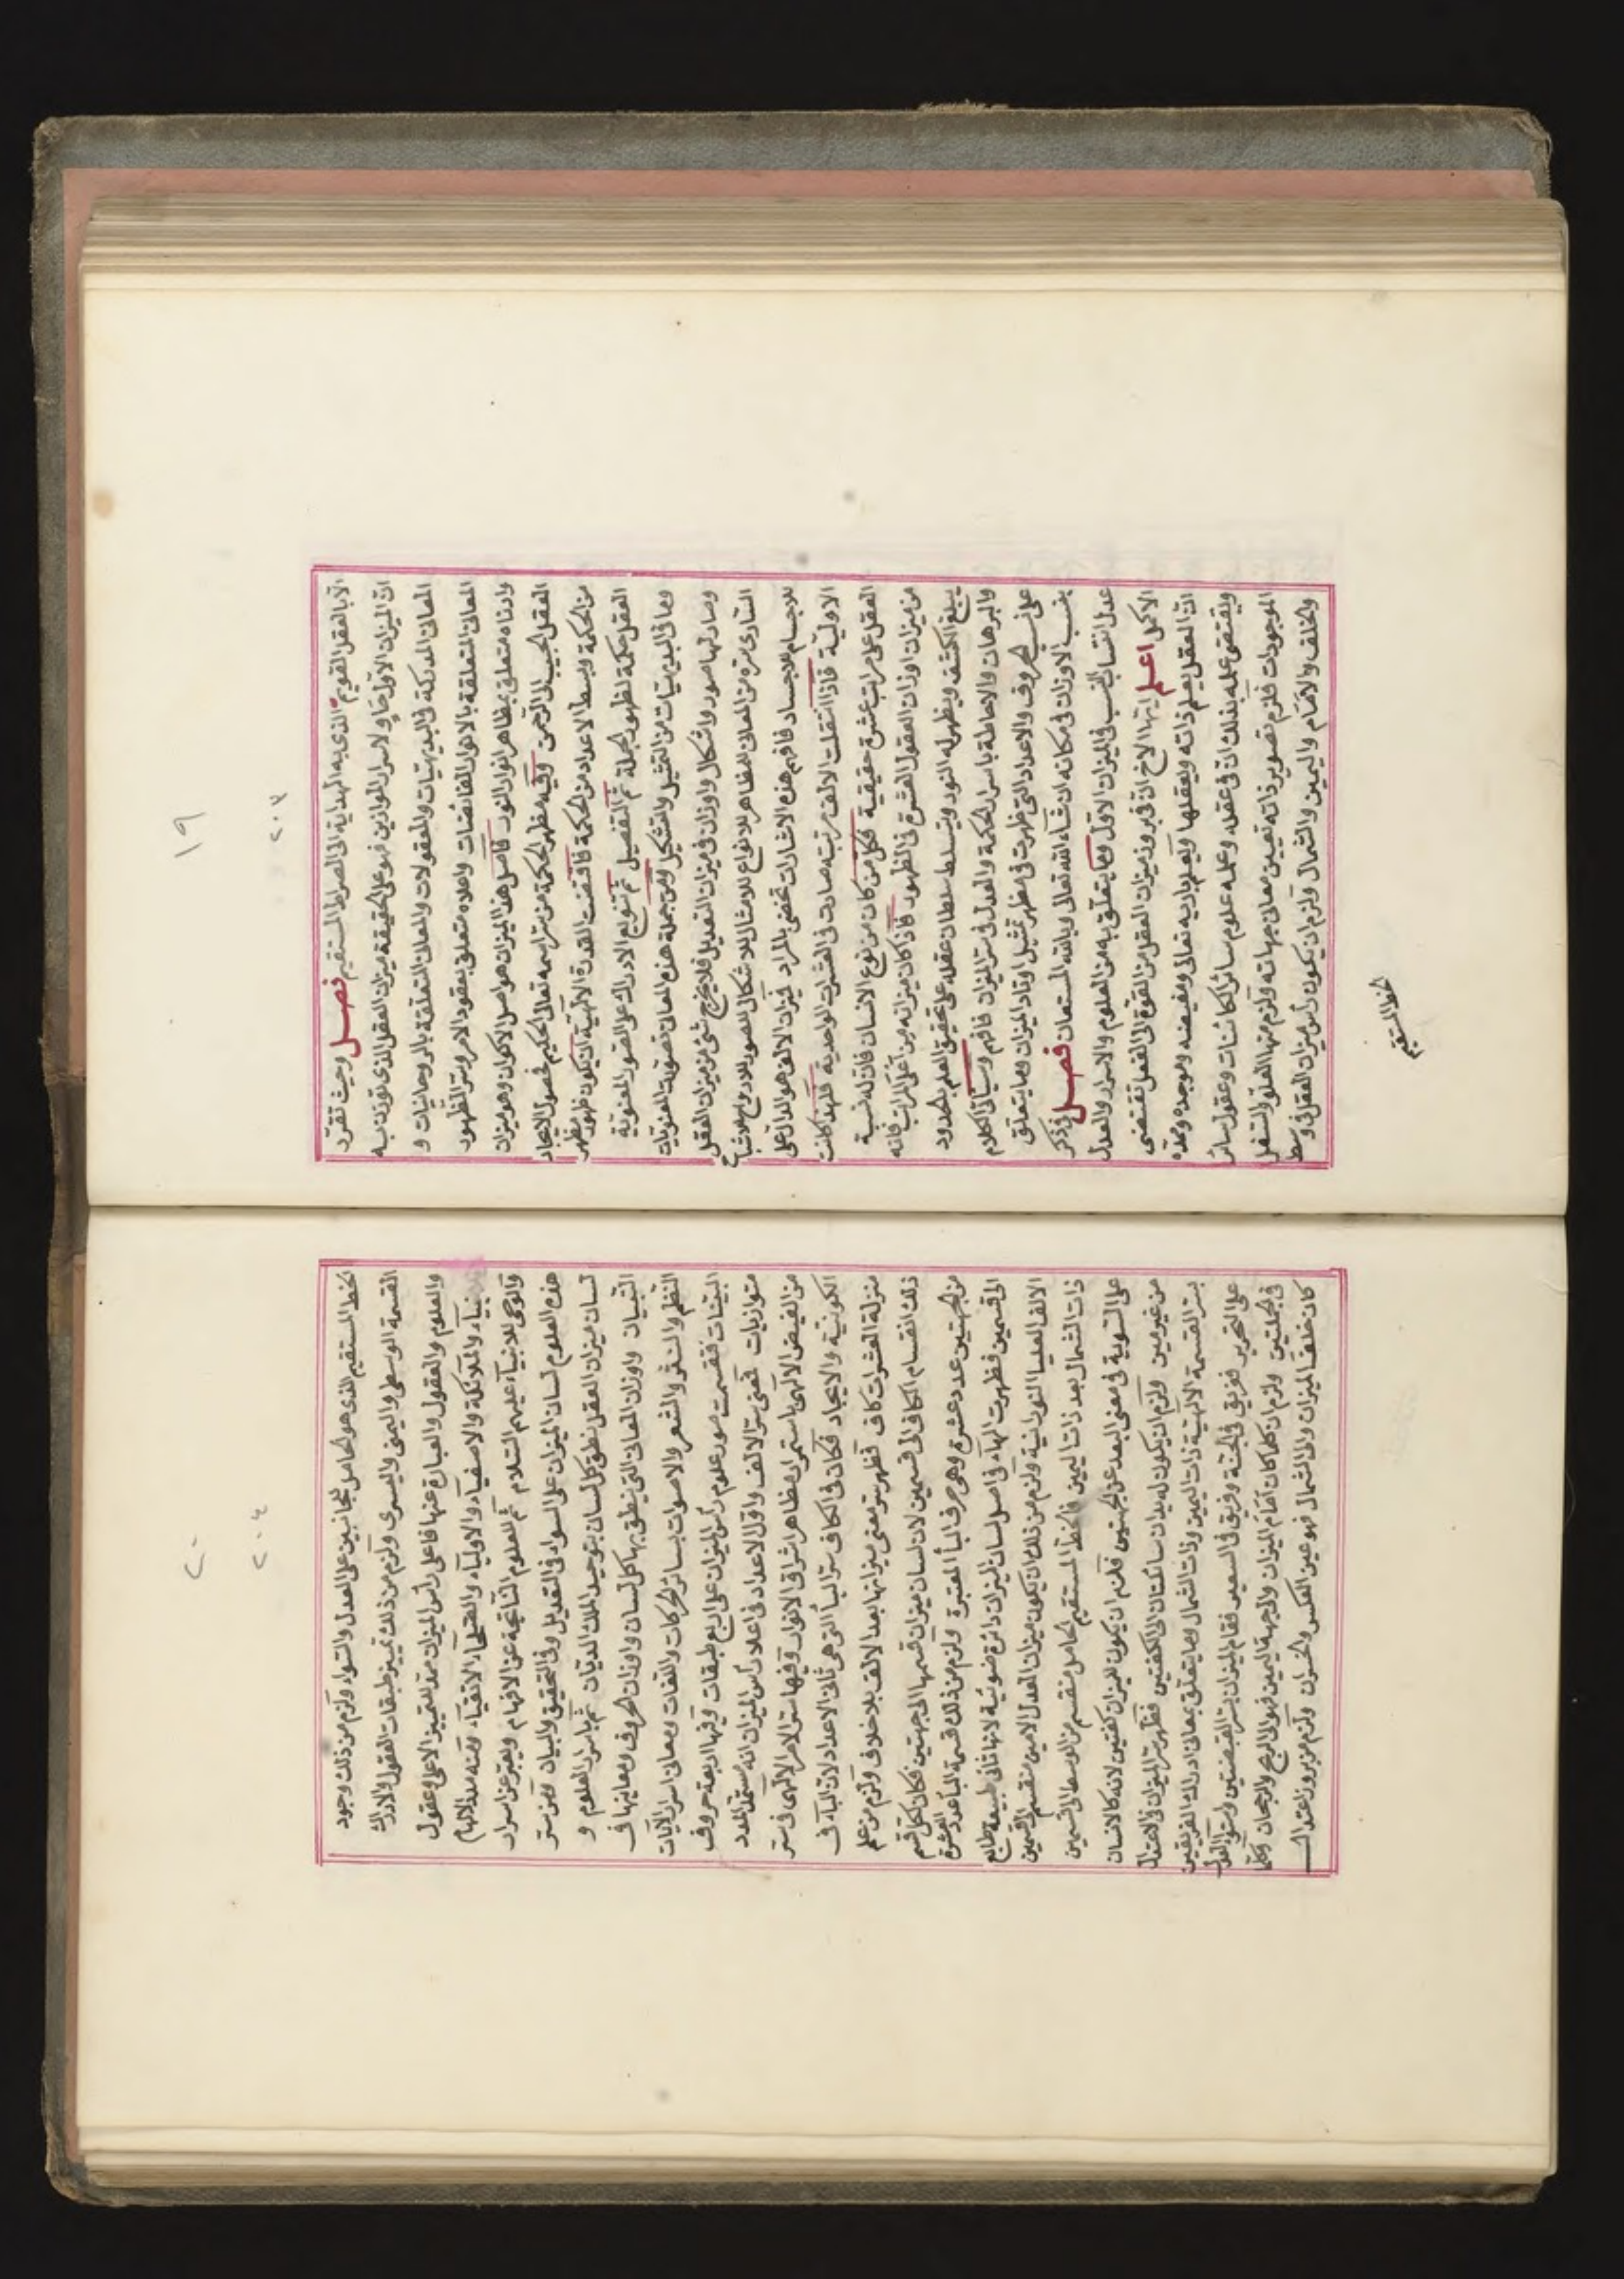 ١٩
٢٠٣
الا بالعقل القويم الذى به الهداية الى الصراط المستقيم فصل وحيث تقرّر
انّ الميزان الاوّل حاوٍ لاسرار الموازين فهو على الحقيقة ميزان العقل الذى توزن به
المعانى المدركة فى البديهيّات والمعقولات والمعانى المتعلّقة بالروحانيات و
المعانى المتعلّقة بالانوار الفائضات واعلاه متعلّق بعقود الامر وسرّ الظهور
وادناه متعلّق بمظاهر انوار النور فاصل هذا الميزان هو اصل الاكوان وهو ميزان
العقل الحبيب الى الرّحمن وفيه مظهر الحكمة من سرّ اسمه تعالى الحكيم فحصول الايجاد
من الحكمة وبسط الاعداد من الحكمة فاقتضت القدرة الالهيّة ان يكون ظهور مظهر
العقل حكمة لظهور الجملة ثم التفصيل ثم تنويع الادراك على الصّور المعنويّة
وما فى البديهيّات من التمثيل والتشكيل ومن جملة هذه المعانى تصوّرت المعنويّات
وصار لها صور واشكال واوزان فى ميزان التعديل فلا يخرج شئ من ميزان العقل
السّارى سرّه من المعانى للمظاهر للانواع للامثال للاشكال للصور للارواح للاشباح
للاجسام للاجساد فافهم هذه الاشارات تحضى بالمراد فميزان الالف هو الدال على
الاولية فاذا انتقلت الالف مرتبه صارت فى العشرات الواحدية فلهذا كانت
العقل على مراتب عشرة حقيقية فكل من كان من نوع الانسان فان له نسبة
من ميزان اوزان العقول العشرة فى الظهور فاذا كان ميزانه من اعلى المراتب فانه
يبلغ الكشف ويظهر له النور ويتسلط سلطان عقله على تحقيق العلم بالحدود
والبرهان والاحاطة باسرار الحكمة والعدل فى سرّ الميزان فافهم وسيأتى الكلام
على نسب الحروف والاعداد التى ظهرت فى مظهر تمثيل اوتاد الميزان وما يتعلق
بنسب الاوزان فى مكانه ان شاء الله تعالى وبالله المستعان فصل فى ذكر
عدل انتساب النسب فى الميزان الاول وما يتعلّق به من العلوم والاسرار والعدل
الاكمل اعلم ايها الاخ ان فى بروز ميزان العقل من القوة الى الفعل تقتضى
انّ العقل يعلم ذاته ويعقلها ويعلم باريه تعالى ومفيضه وموجده وممدّه
ويقتضى علمه بذلك ان فى عقله وعلمه علوم سائر الكائنات وعقول سائر
الموجودات فلزم تصوير ذاته تعيين معانى جهاته ولزم منها العلو والسفل
والخلف والامام واليمين والشمال ولزم ان يكون رأس ميزان العقل فى وسط
الخط المستقيم
٢٠
٢٠٤
الخط المستقيم الذى هو الحامل للجانبين على العدل والسواء ولزم من ذلك وجود
القسمة الوسطى واليمنى واليسرى ولزم من ذلك تمييز طبقات العقول والادراك
والعلوم والعقول والعبارة عنها فاعلى رأس الميزان ممدّ لتمييز الاعلى وعقول
الانبياء والملائكة والاصفياء والاولياء والصلحاء الاتقياء ومنه مدد الالهام
والوحى للانبياء عليهم السّلام ثم للعلوم الناتجة عن الافهام ويعبر عن اسرار
هذه العلوم لسان الميزان على السواء فى التعديل وفى التحقيق والبيان ومن سرّ
لسان ميزان العقل نطق كل لسان بتوحيد الملك الديّان ثم باسرار العلوم و
التبيان واوزان المعانى التى ينطق بها كل لسان واوزان الحروف ومعاينها فى
النظم والنثر والشعر والاصوات بسائر الحركات واللغات ومعانى اسرار الآيات
البيّنات فتقسمت صور علوم رأس الميزان على اربع طبقات وفيها اربعة حروف
متوازيات تحضى سرّ الالف واوّل الاعداد فى اعلا رأس الميزان انه مستمدّ المدد
من الفيض الالهى باستمرار مظاهر اشراق الانوار وفيها سرّ الامر الالهى فى ستر
الكونيّة والايجاد فكان فى الكاف سرّ الباء التى هى ثانى الاعداد لانّ الباء فى
منزلة العشرات كاف فظهر سرّ معنى ميزانها بعد الالف بلا خلاف ولزم من علم
ذلك انقسام الكاف الى قسمين لان لسان ميزان قسمها الى جهتين فكان لكل قسم
من الجهتين عدد عشرة وهى حرف الياء المعتبرة ولزم من ذلك قسمة الياء عدد العشرة
الى قسمين فظهرت الهاء فى اصل لسان الميزان دائرة ضوئية لانها فى طبيعة طابع
الالف العليا النورانية ولزم من ذلك ان يكون ميزان العدل الامين منقسم الى قسمين
ذات الشمال بعد ذات اليمين فالخط المستقيم الحامل منقسم من الوسط الى قسمين
على السّوية فى معنى البعد عن الجهتين فلزم ان يكون للميزان كفتين لانه كالانسان
من غير مين ولزم ان يكون له يدان ساكنتان الى الكفتين فظهر سرّ الميزان فى الاعتدال
بسرّ القسمة الالهيّة ذات اليمين وذات الشمال وما يتعلق بمعانى ادراك الفريقين
على التحرير فريق فى الجنّة وفريق فى السعير فقام الميزان بسرّ القبضتين واستواء العدل
فى الجملتين ولزم ان كلما كان امام الميزان والجهة اليمين فهو الى الربح والرجحان وكلّما
كان خلف الميزان والى الشمال فهو عين العكس والخسران ولزم من بروز اعتدالــ